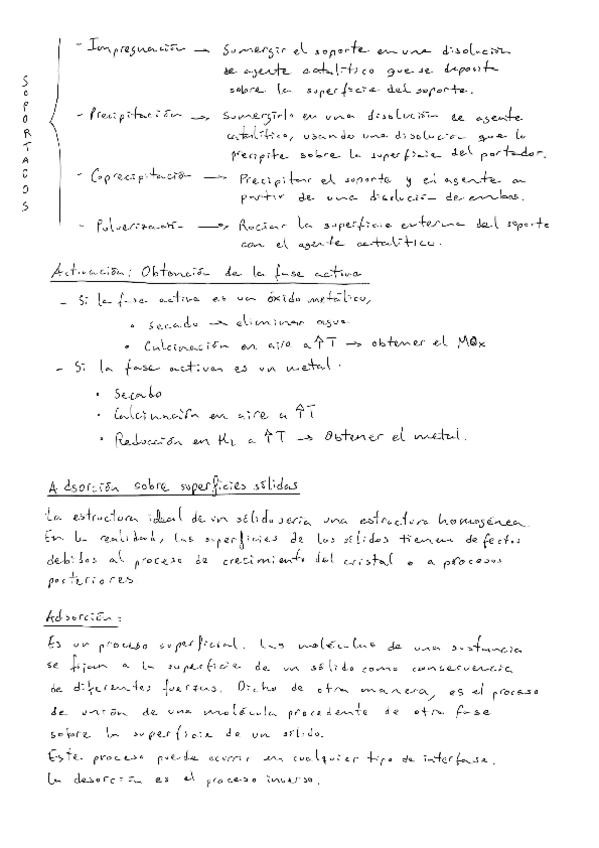 SOPORTADOS
- Impregnación → Sumergir el soporte en una disolución
de agente catalítico que se deposita
sobre la superficie del soporte.
- Precipitación → Sumergirlo en una disolución de agente
catalítico, usando una disolución que lo
precipite sobre la superficie del portador.
- Coprecipitación → Precipitar el soporte y el agente a
partir de una disolución de ambos.
- Pulverización → Rociar la superficie externa del soporte
con el agente catalítico.
Activación: Obtención de la fase activa
- Si la fase activa es un óxido metálico,
• secado → eliminar agua
• Calcinación en aire a ↑T → obtener el MOx
- Si la fase activa es un metal.
• Secado
• Calcinación en aire a ↑T
• Reducción en H2 a ↑T → Obtener el metal.
Adsorción sobre superficies sólidas
La estructura ideal de un sólido sería una estructura homogénea.
En la realidad, las superficies de los sólidos tienen defectos
debidos al proceso de crecimiento del cristal o a procesos
posteriores
Adsorción:
Es un proceso superficial. Las moléculas de una sustancia
se fijan a la superficie de un sólido como consecuencia
de diferentes fuerzas. Dicho de otra manera, es el proceso
de unión de una molécula procedente de otra fase
sobre la superficie de un sólido.
Este proceso puede ocurrir en cualquier tipo de interfase.
La desorción es el proceso inverso.